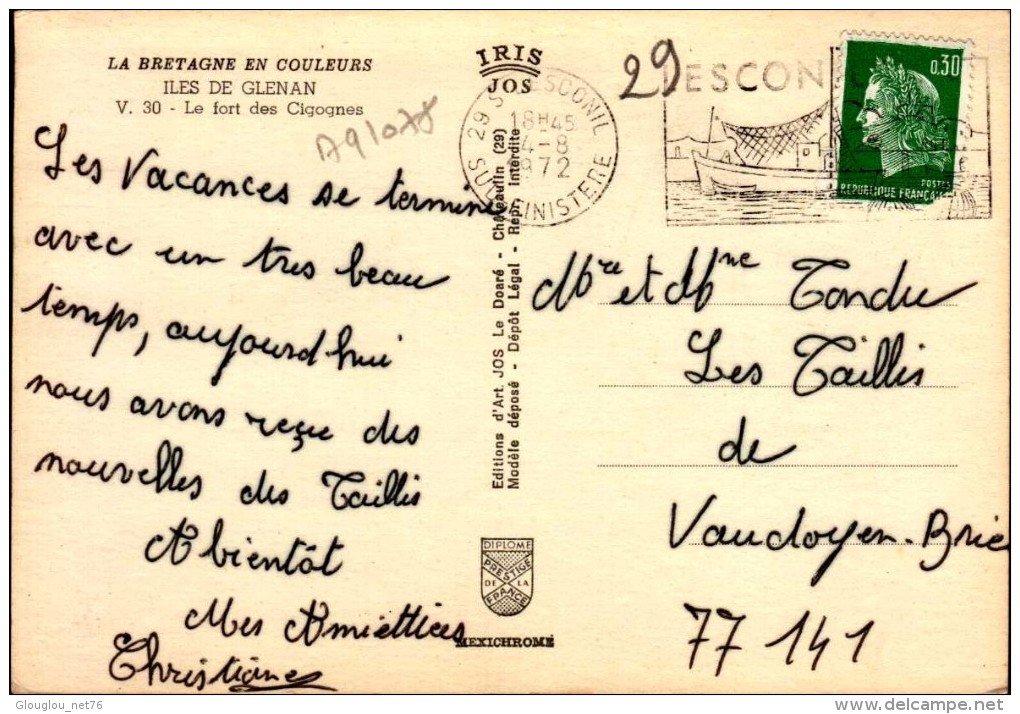 LA BRETAGNE EN COULEURS
ILES DE GLENAN
V. 30 - Le fort des Cigognes
A91078
Les Vacances se termine
avec un tres beau
temps, aujourd'hui
nous avons reçue des
nouvelles des Taillis
A bientôt
Mes Amiettices
Christiane
IRIS
JOS
Editions d'Art JOS Le Doaré - Châteaulin (29)
Modèle déposé - Dépôt Légal - Repr. Interdite
DIPLOME
PRESTIGE
DE LA
FRANCE
MEXICHROME
29 S
ESCONIL
18H45
4-8
1972
SUD FINISTERE
29
LESCONIL
0.30
POSTES
REPUBLIQUE FRANCAISE
Mre et Mme Tondu
Les Taillis
de
Vaudoyen-Brie
77 141
Glouglou_net76
delcampe.net